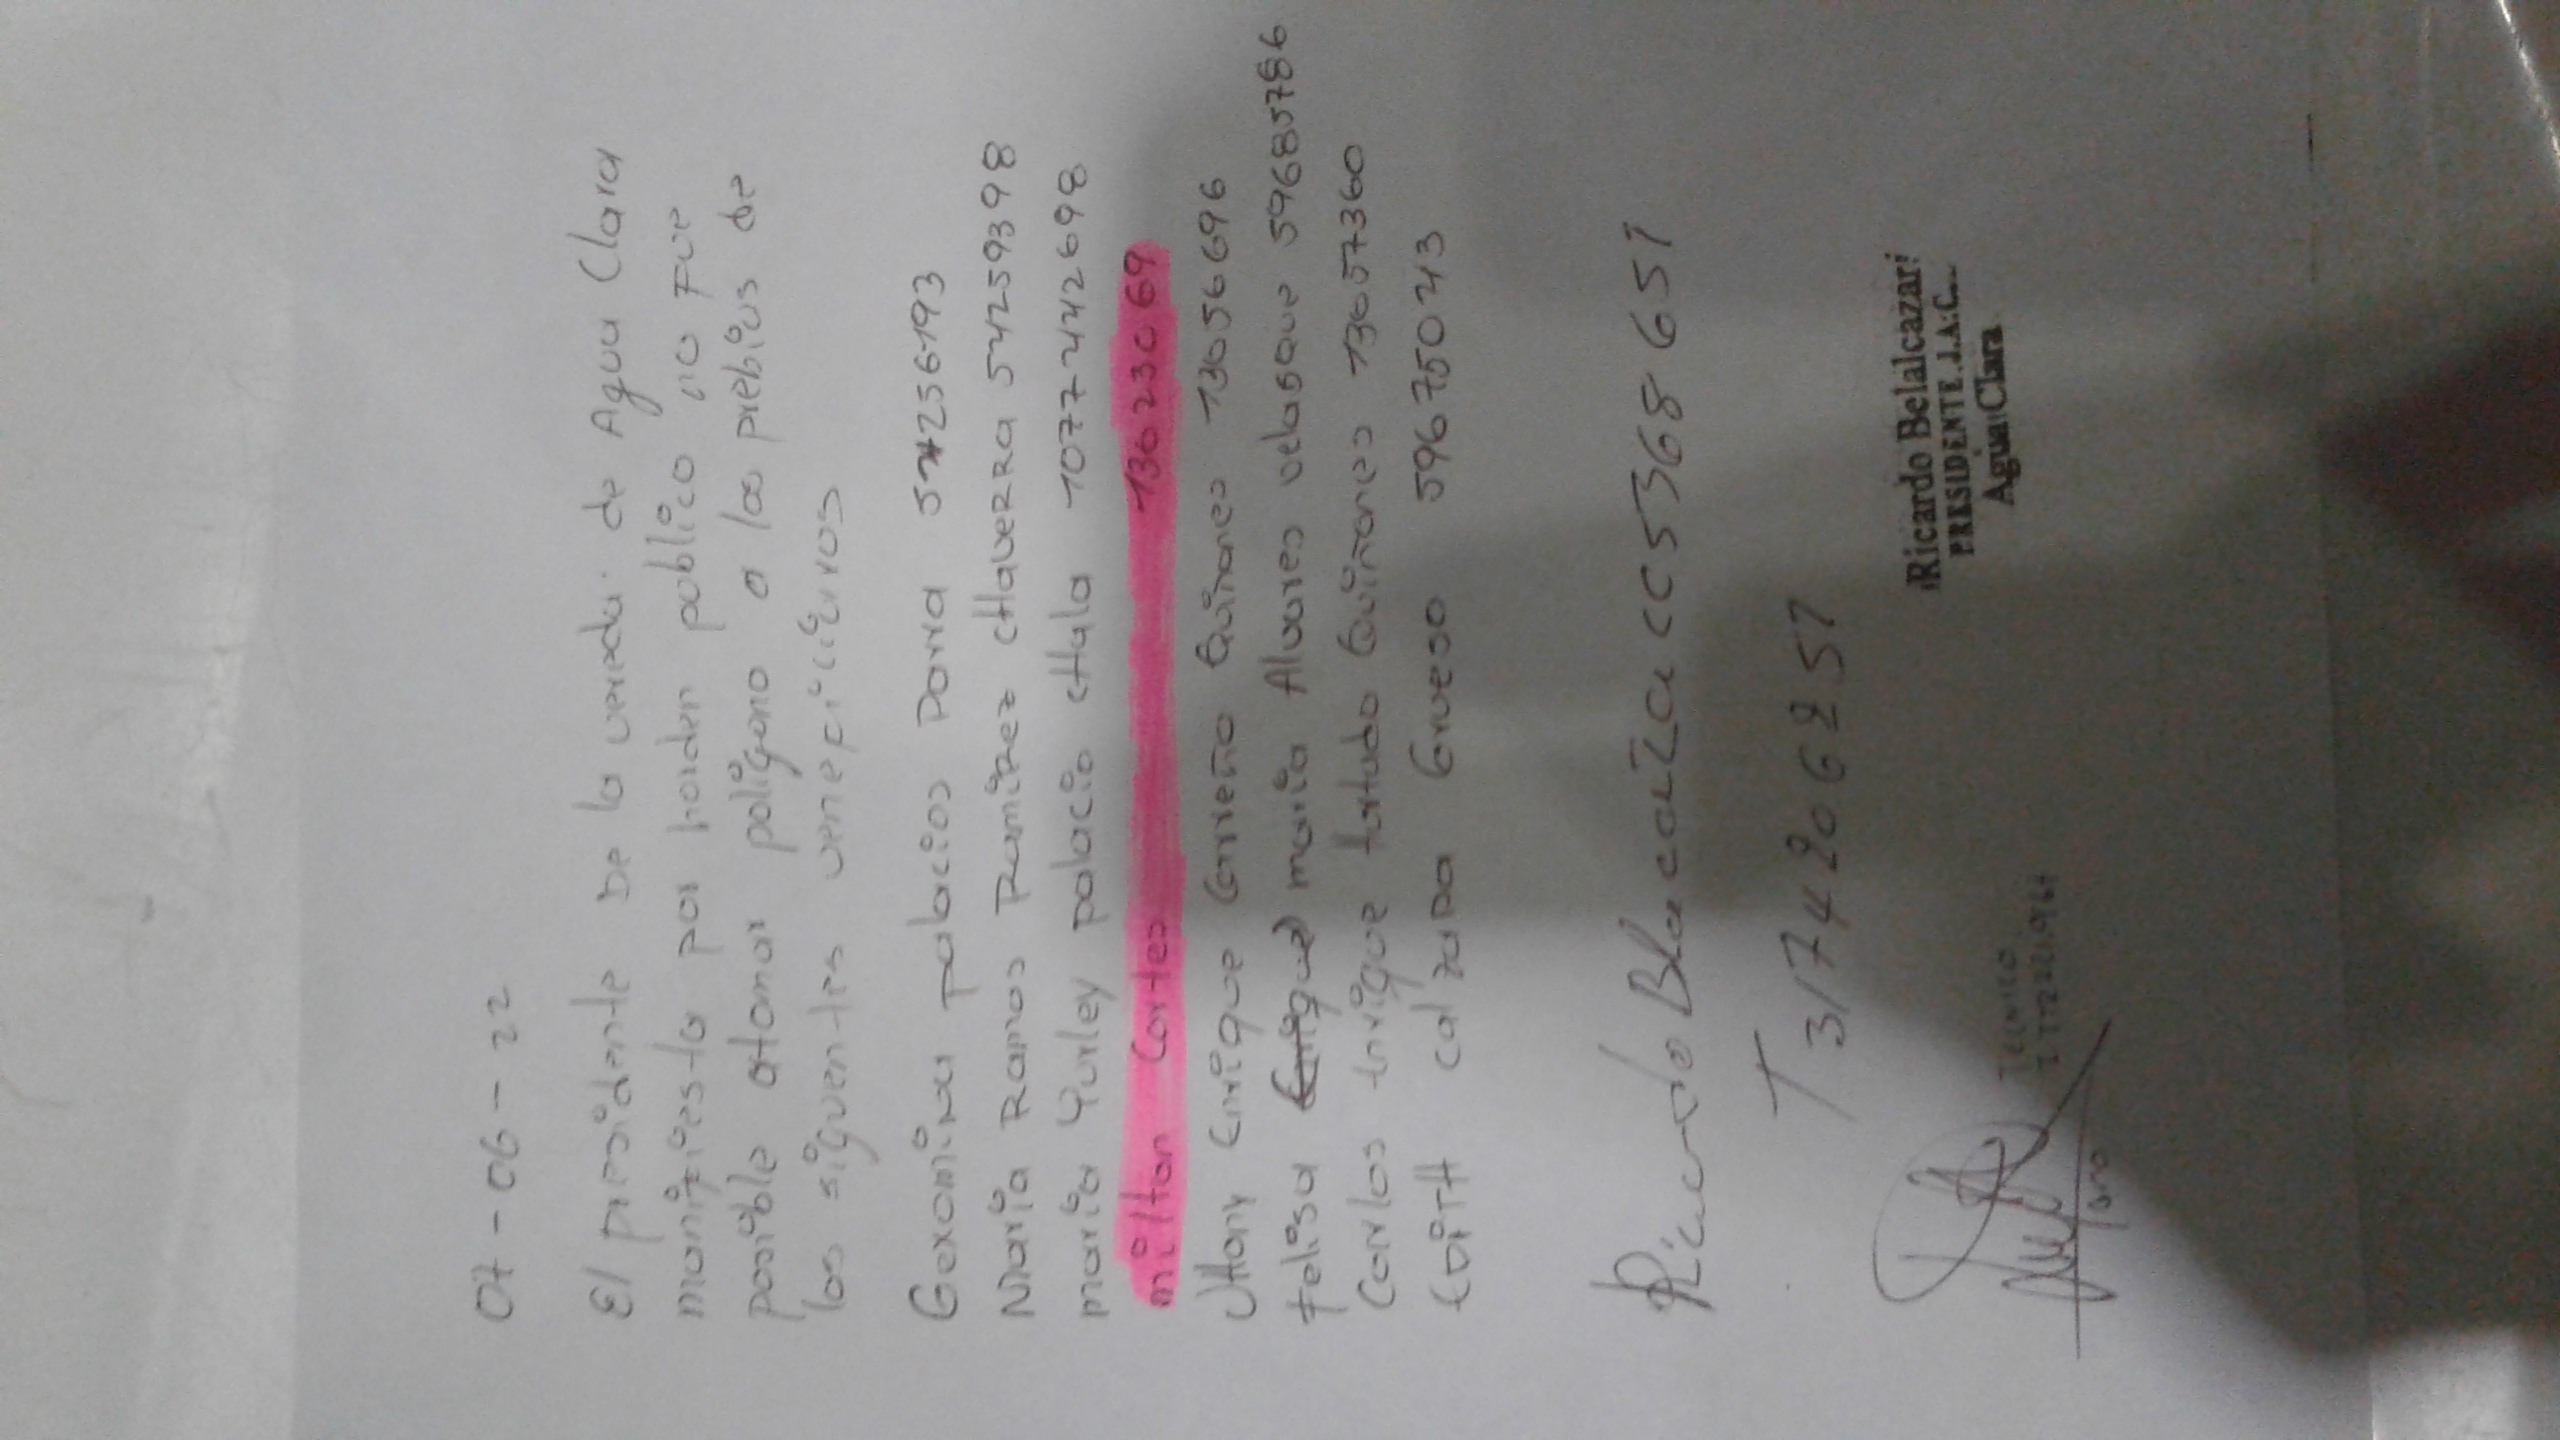 07-06-22
El presidente De la vereda. de Agua Clara
manifiesta por horden publico no fue
posible atomar poligono a los prebios de
los siguentes veneficiarios
Geronima palacios Parra 54256193
Maria Ramos Ramirez CHaverra 54259398
maria Yurley palacio CHala 1077442698
milton Cortes 13623069
JHony Enrique Carreño Quiñones 13056696
Felisa maria Alvares velasque 596857 86
Carlos Enrique Hurtado Quiñones 13057360
EDITH calzapa Grueso 59675043
Ricardo cc 5368651
T 3174206251
Ricardo Belalcazar
PRESIDENTE J.A.C.
Agua Clara